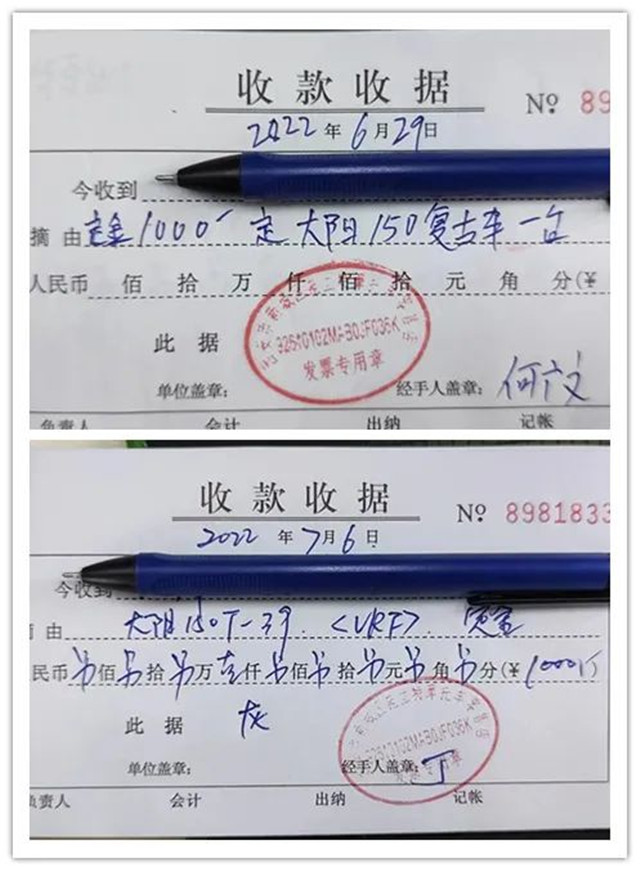 收款收据
№ 89
2022年6月29日
今收到
摘由 定金1000 定 大阳150复古车一台
人民币 佰 拾 万 仟 佰 拾 元 角 分(¥
此据
92610102MAB0JF036K
发票专用章
单位盖章: 经手人盖章: 何六文
负责人 会计 出纳 记帐
收款收据
№ 8981833
2022年7月6日
今收到
由 大阳150T-39. <VRF>. 定金
民币 佰 拾 万 仟 佰 拾 元 角 分(¥ 1000
此据 灰
92610102MAB0JF036K
发票专用章
单位盖章: 经手人盖章: 丁
负责人 会计 出纳 记帐